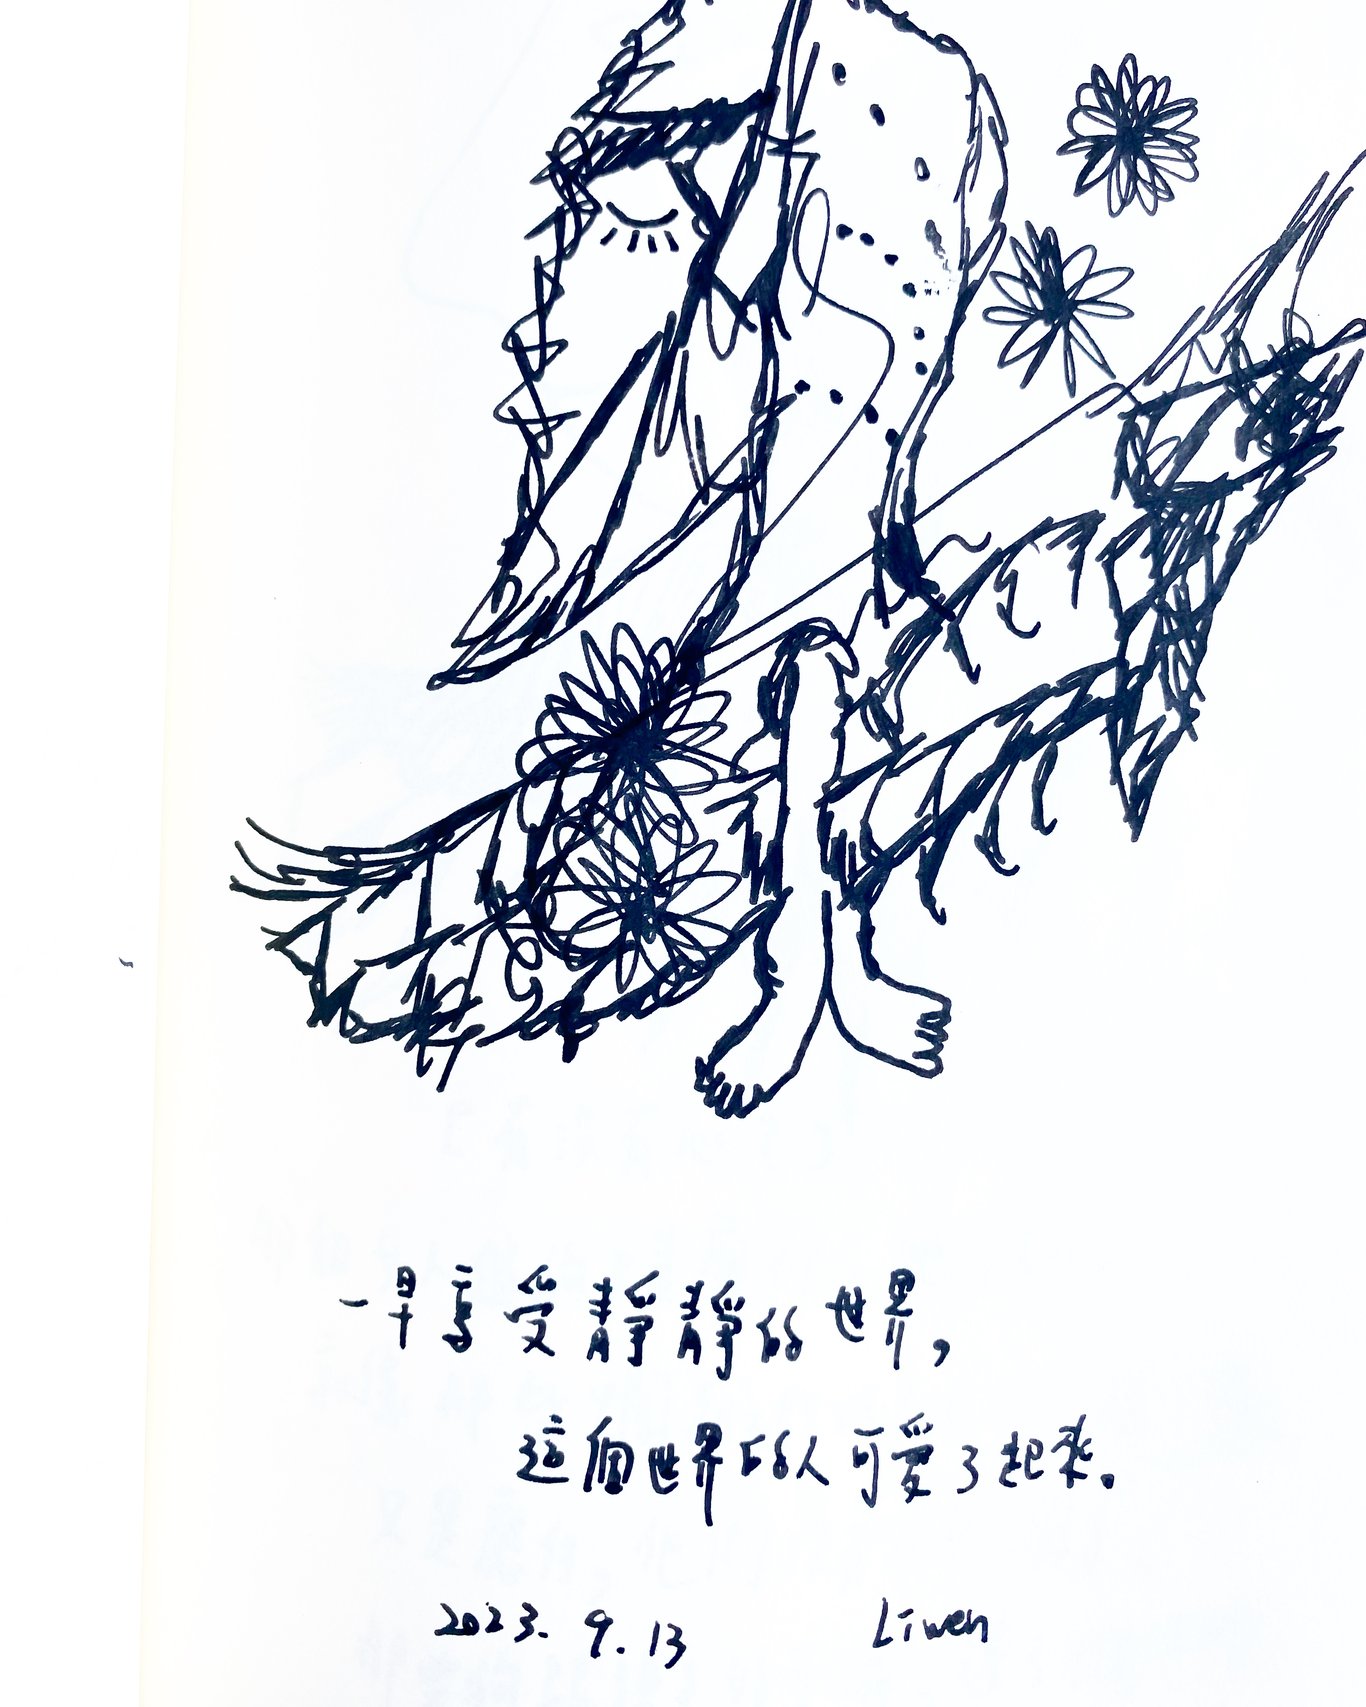 一早享受靜靜的世界，
這個世界的人可愛了起來。
2023.9.13 Liwen